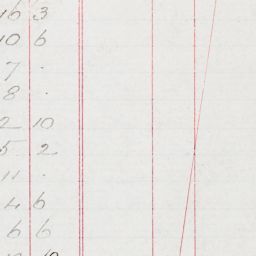 16 3
10 6
7 .
8 .
2 10
5 2
11 .
4 6
6 6
10